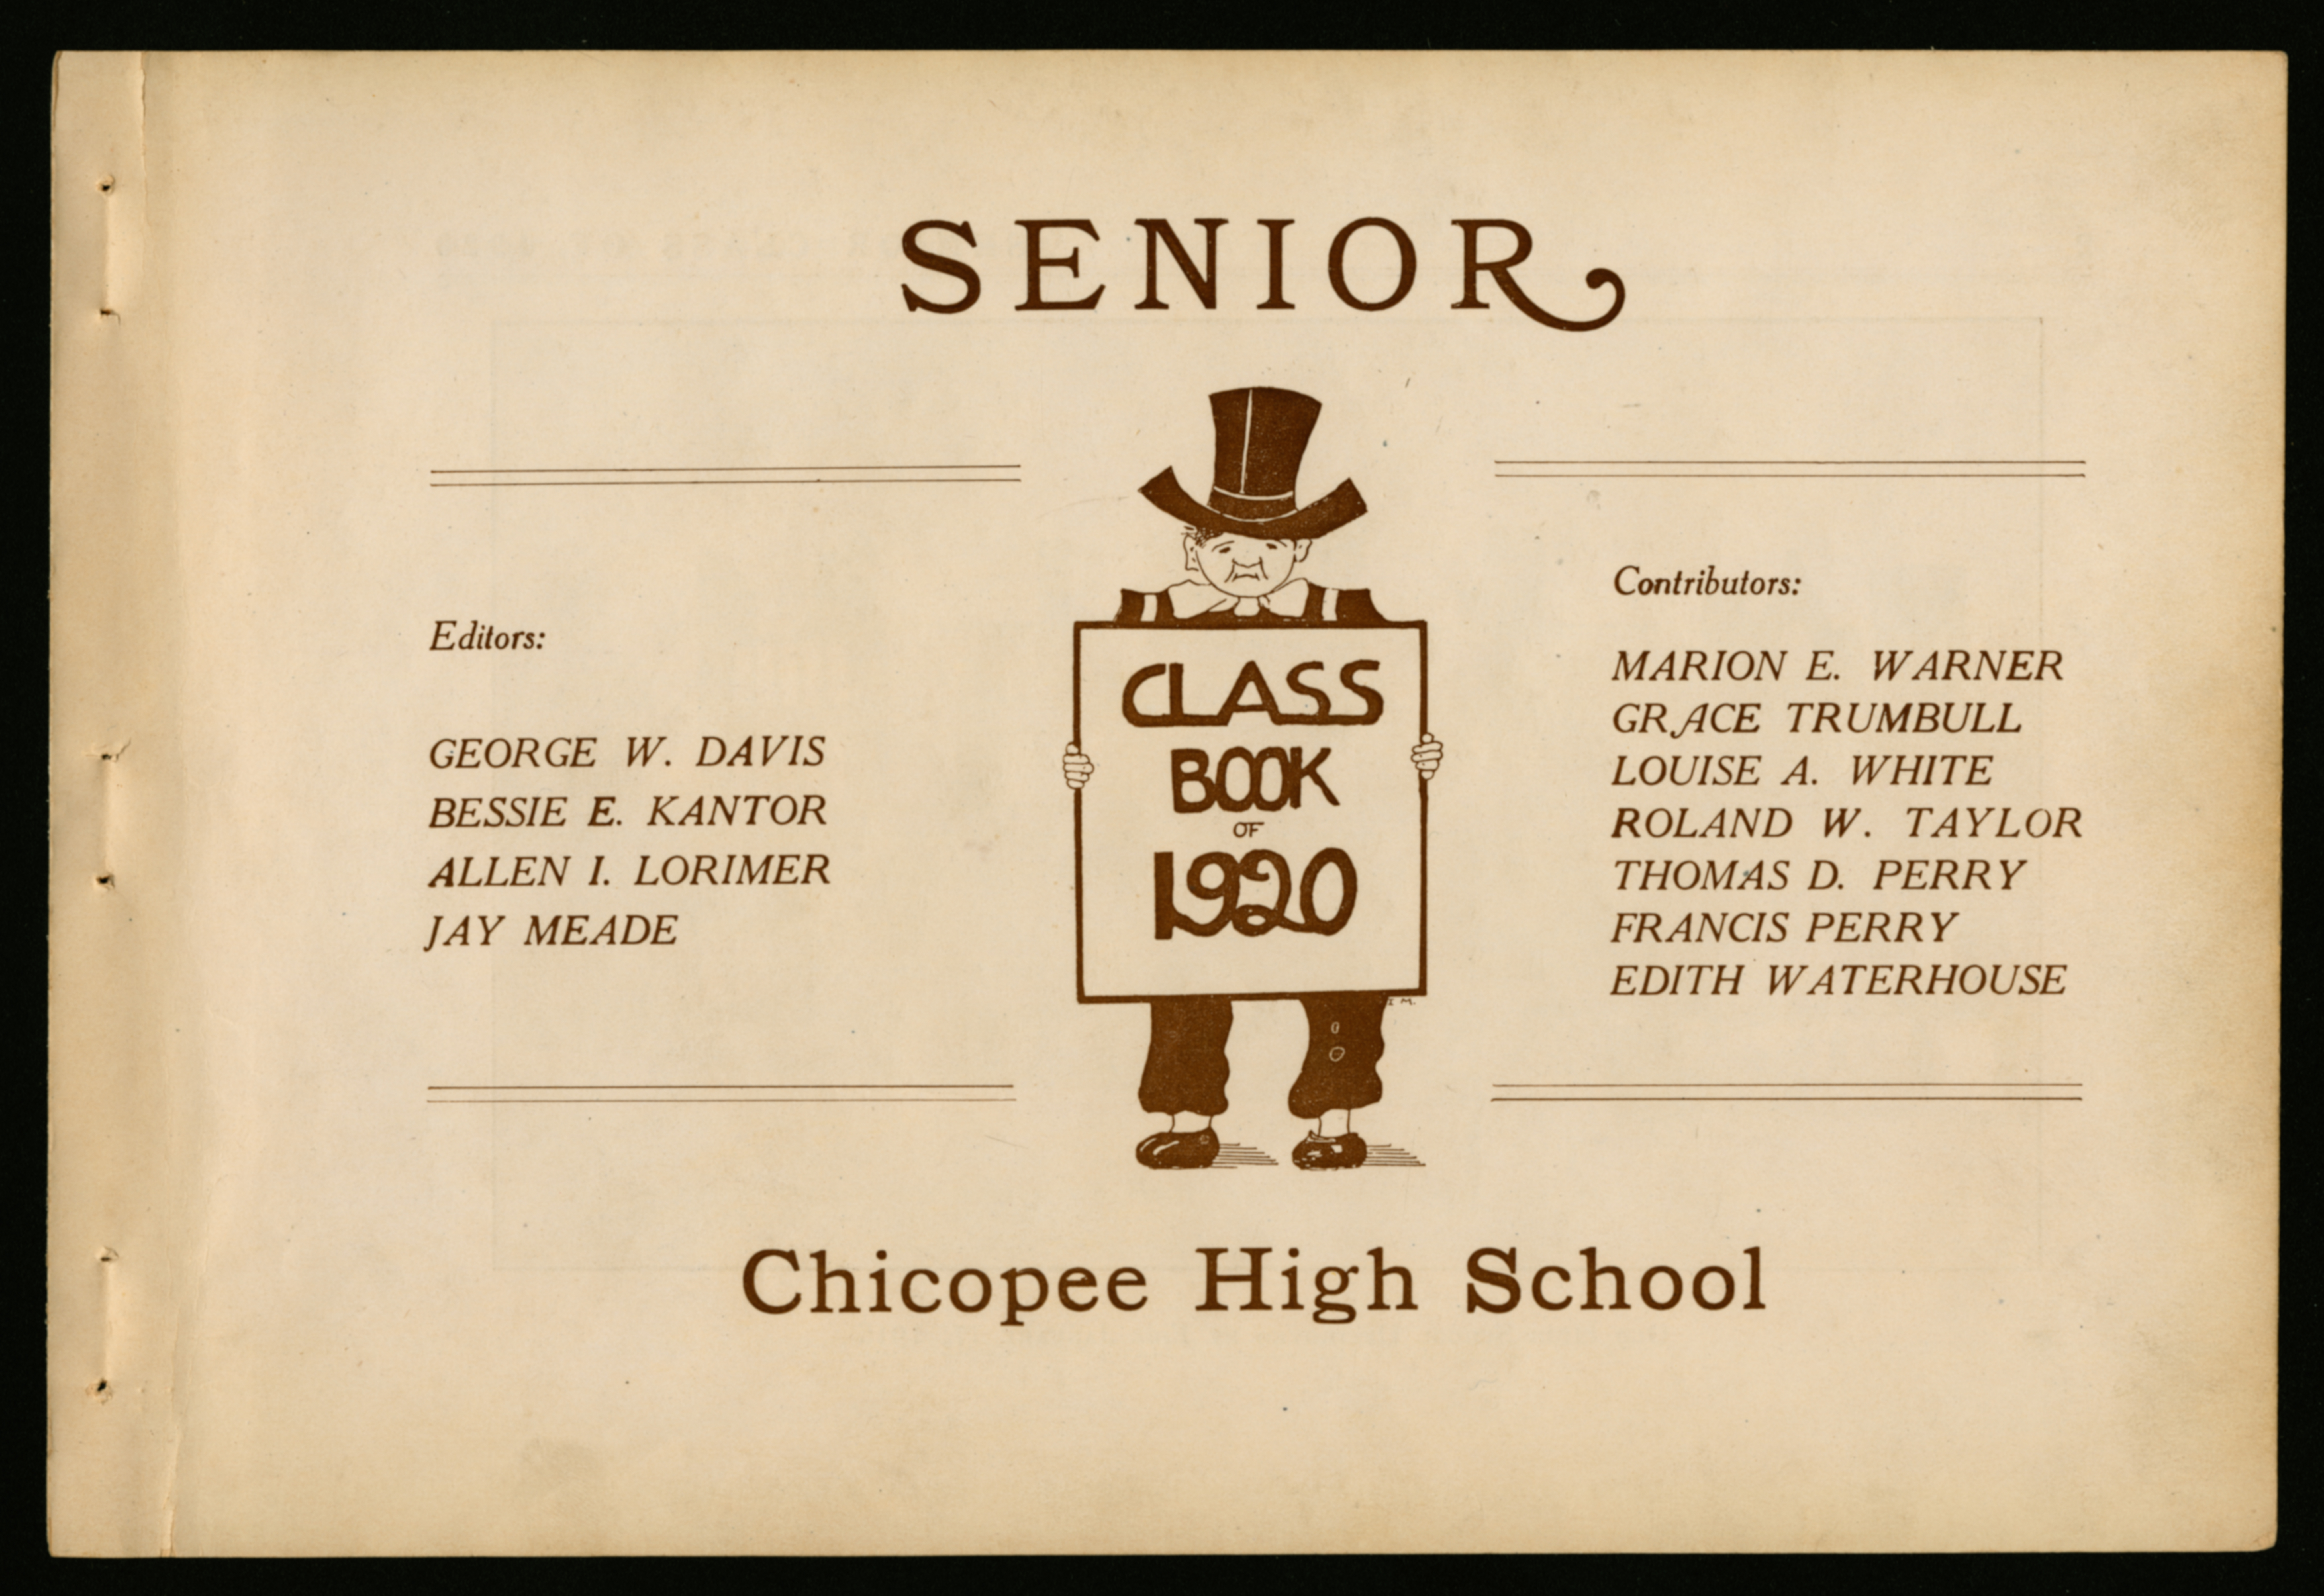 SENIOR
Editors:
GEORGE W. DAVIS
BESSIE E. KANTOR
ALLEN I. LORIMER
JAY MEADE
CLASS
BOOK
OF
1920
Contributors:
MARION E. WARNER
GRACE TRUMBULL
LOUISE A. WHITE
ROLAND W. TAYLOR
THOMAS D. PERRY
FRANCIS PERRY
EDITH WATERHOUSE
Chicopee High School